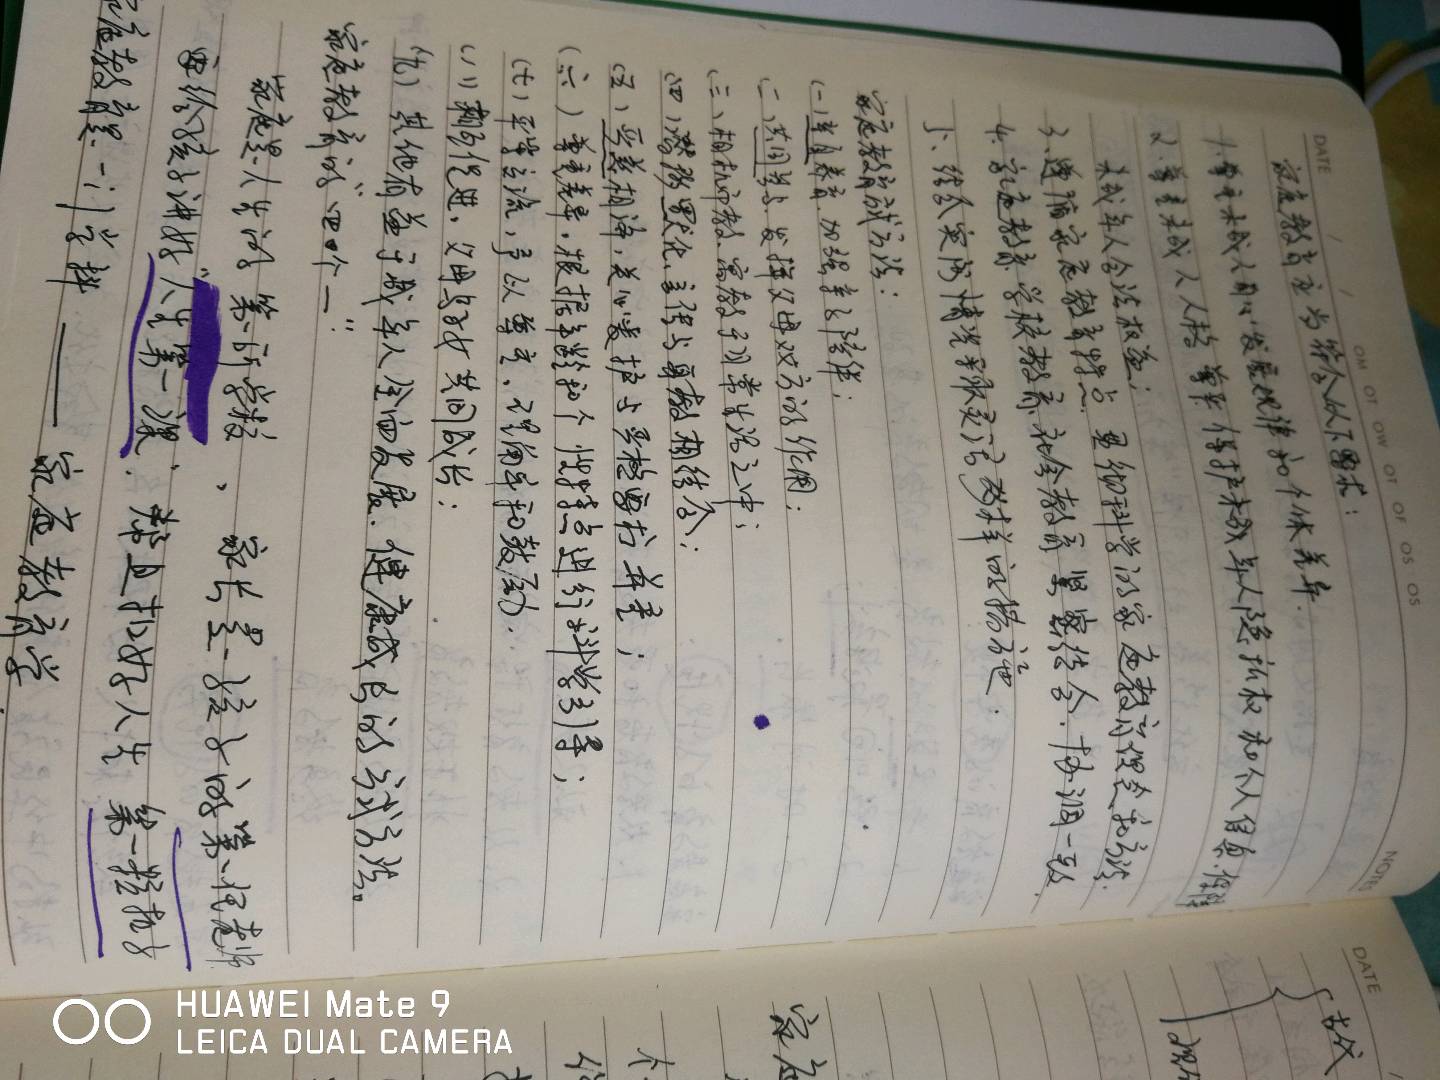 DATE / /
MO TU WE TH FR SA SU
NOTE
家庭教育应当符合以下要求：
1.尊重未成人身心发展规律和个体差异.
2.尊重未成人人格尊严保护未成年人隐私权和个人信息.保障
未成年人合法权益；
3.遵循家庭教育特点.贯彻科学的家庭教育理念和方法.
4.家庭教育、学校教育、社会教育紧密结合.协调一致
5、结合实际情况采取灵活多样的措施.
家庭教育的方法：
(一)亲自养育,加强亲子陪伴；
(二)共同参与,发挥父母双方的作用；
(三)相机而教,寓教于日常生活之中；
(四)潜移默化,言传与身教相结合；
(五)严慈相济,关心爱护与严格要求并重；
(六)尊重差异,根据年龄和个性特点进行科学引导；
(七)平等交流,予以尊重、理解和鼓励.
(八)相互促进,父母与子女共同成长；
(九)其他有益于成年人全面发展.健康成长的方式方法。
家庭教育的“四个一”
家庭是人生的第一所学校、家长是孩子的第一任老师
要给孩子讲好“人生第一课、帮且扣好人生第一粒扣子
家庭教育是一门学科——家庭教育学
DATE /
HUAWEI Mate 9
LEICA DUAL CAMERA